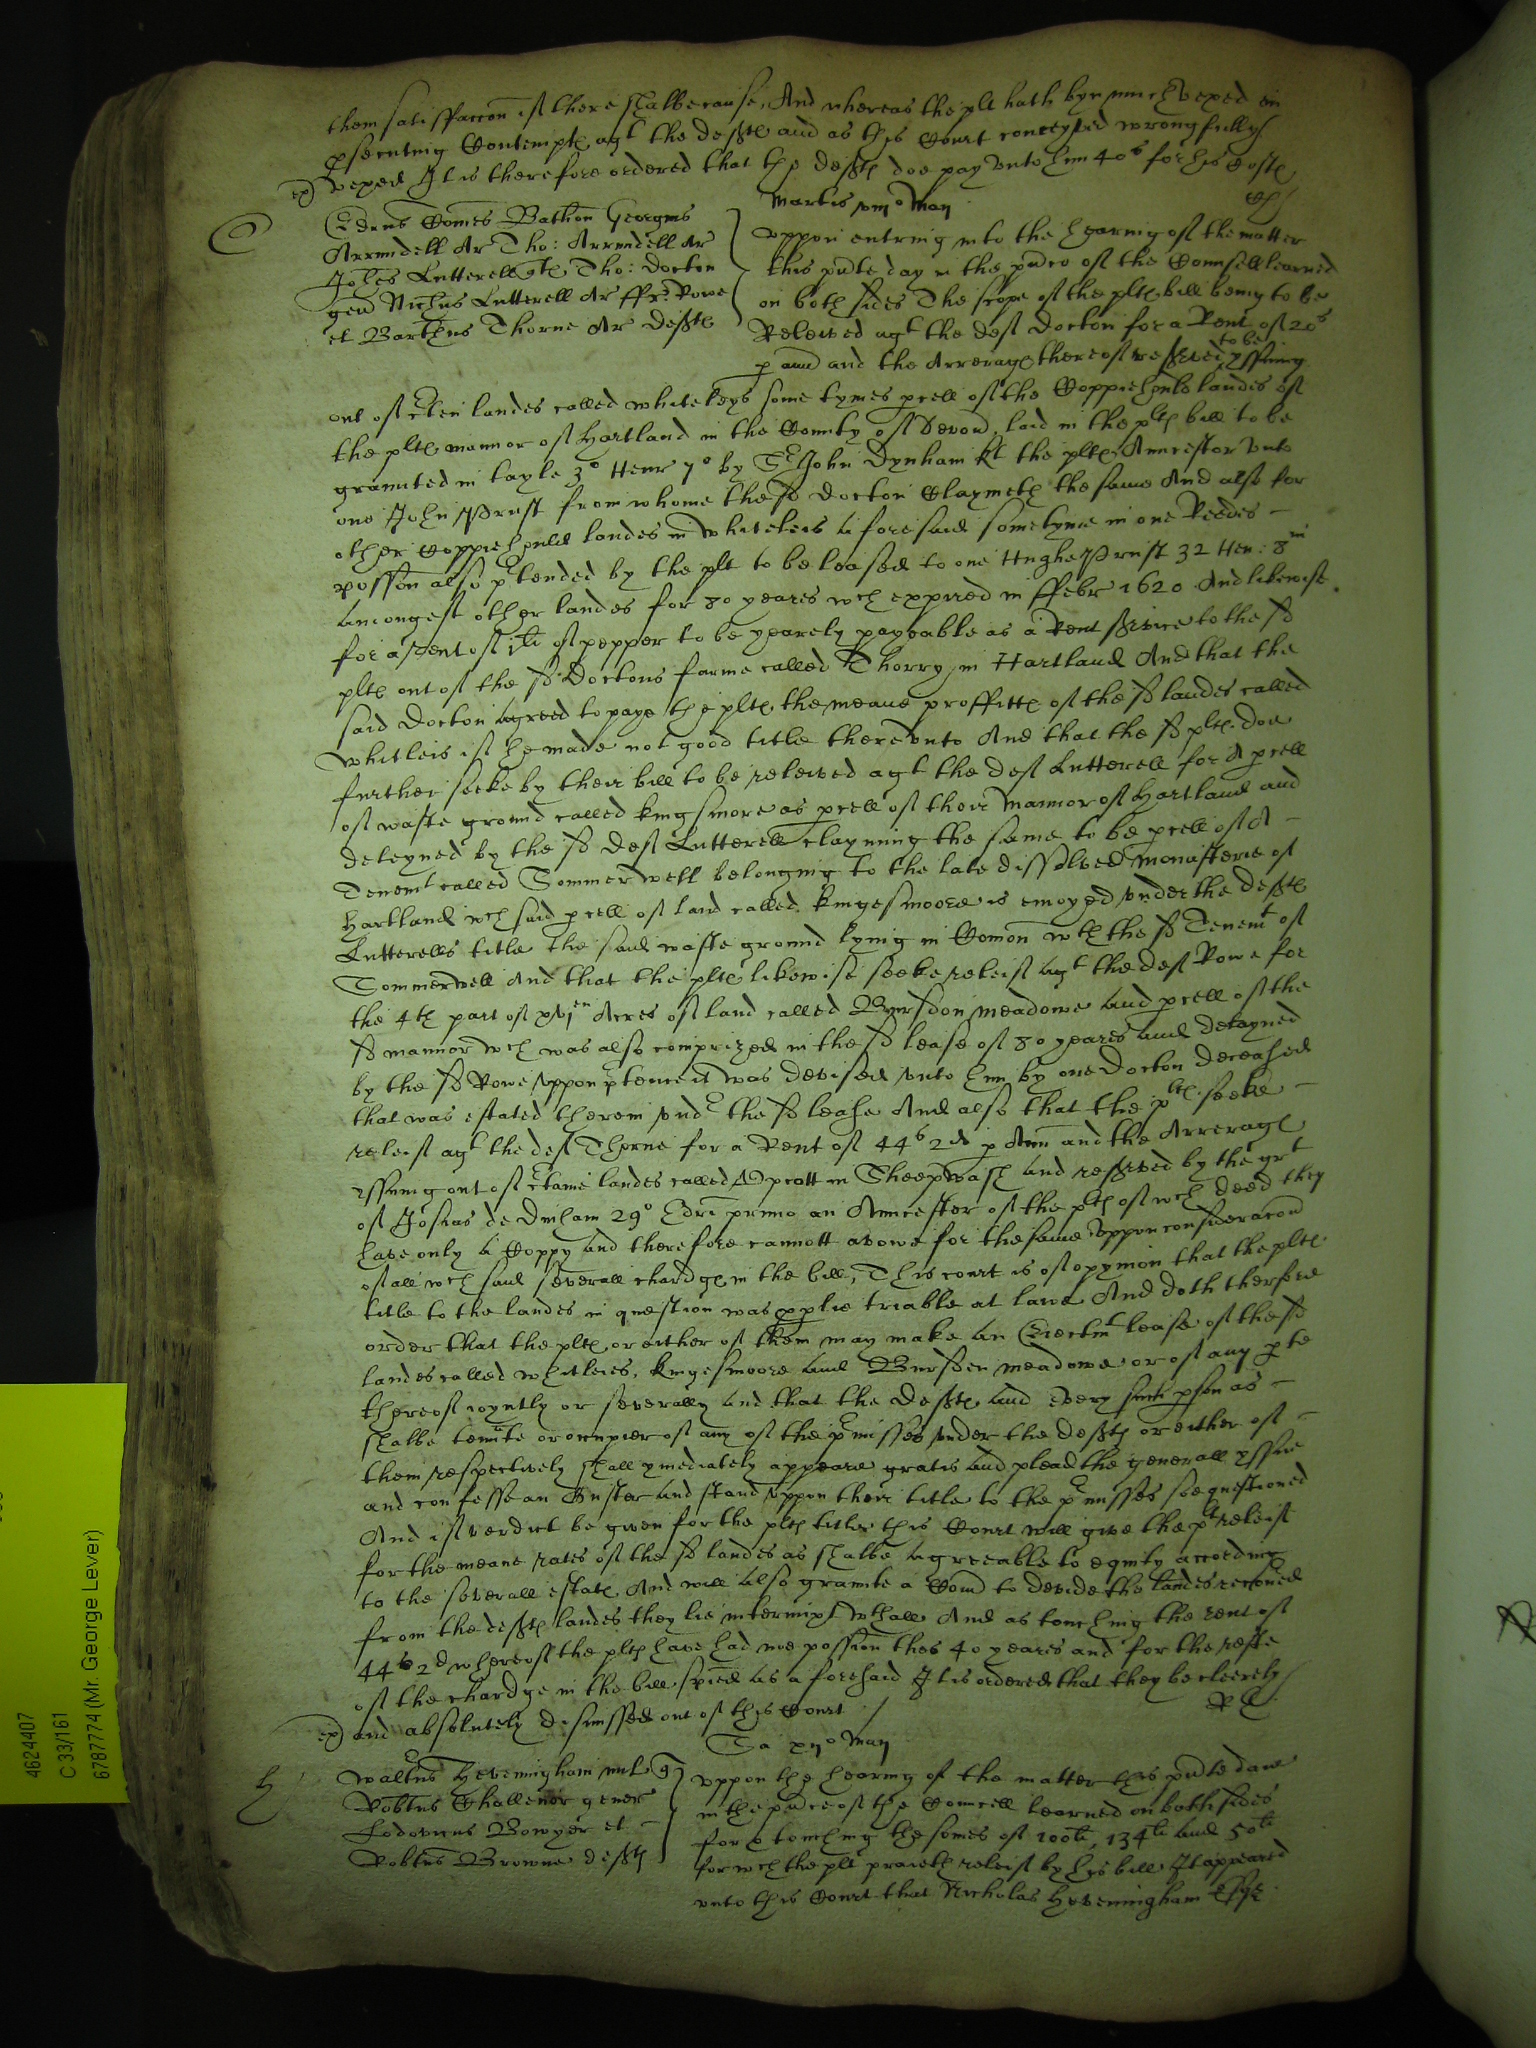 them satisffaccon if there shalbe cause, And whereas the plt hath byn much vexed in
psecuting Contempte agt the defte and as this Court conceyved wrongfully
ex) vexed It is therefore ordered that the defte doe pay vnto him 40s for his Coste
Martis viijo Maij
E
Edrus Comes Bathon Georgius
Arrundell Ar Tho: Arrundell Ar
Johes Lutterell Tho: Docton
gen Nichus Lutterell Ar ffr: Rowe
et Barthus Thorne Ar defte
vppon entring into the hearing of the matter
this pnte day in the pnce of the Counsell learned
on both sides The scope of the plte bill being to be
Releived agt the deft Docton for a Rent of 20s
p ann and the Arrerage thereof reserved to be yssuing
out of cten landes called whiteleys some tymes pcell of the Coppiehould landes of
the plte mannor of Hartland in the County of Devon, laid in the plte bill to be
graunted in tayle 3o Henr 7o by Sr John Dynham kt the plte Auncestor vnto
one John Prust from whome the sd Docton Claymeth the same And also for
other Coppiehould landes in whiteleis aforesaid sometyme in one Reedes
possion also ptended by the plt to be leased to one Hughe Prust 32 Hen: 8ui
amongest other landes for 80 yeares wch expired in ffebr 1620 And likewise
for a Rent of 1li of pepper to be yearely payeable as a Rent service to the sd
plte out of the sd Doctons farme called Thorry in Hartland And that the
said Docton agreed to paye the plte the meane proffitte of the sd landes called
whitleis if he made not good title therevnto And that the sd plte doe
further seeke by their bill to be releived agt the deft Lutterell for A pcell
of waste ground called kingsmore as pcell of their Mannor of Hartland and
deteyned by the sd deft Lutterell clayming the same to be pcell of A
Tenemt called Sommerwell belonging to the late dissolved Monasterie of
Hartland wch said pcell of land called kingesmoore is enioyed vnder the defte
Lutterells title the said waste ground lying in Comon wth the sd Tenemt of
Sommerwell And that the plte likewise seeke releif agt the deft Rowe for
the 4th part of xvjen Acres of land called Bursdon meadowe and pcell of the
sd mannor wch was also comprized in the sd lease of 80 yeares and detayned
by the sd Rowe vppon ptence it was devised vnto him by one Docton deceased
that was estated therein vnd the sd lease And also that the plte seeke
releif agt the deft Thorne for a Rent of 44s 2d p Ann and the Arrerage
yssuing out of ctaine landes called Upcott in Sheepwash and reserved by the grt
of Josias de Dinham 29o Edri primo an Auncester of the plte of wch deed they
have only a Coppy and therefore cannott avowe for the same vppon consideracon
of all wch said severall chardge in the bill, This court is of opynion that the plte
title to the landes in question was pplie triable at lawe And doth therfore
order that the plte or either of them may make an Eiectmt lease of the sd
landes called whitleies, kingesmoore and Bursden meadowe or of any pte
thereof ioyntly or severally and that the defte and every such pson as
shalbe tennte or occupier of any of the pmisses vnder the defte or either of
them respectively shall ymediately appeare gratis and plead the generall yssue
and confesse an Ouster and stand vppon their title to the pmisses soe questioned
And if verdict be given for the plte title this Court will give the plt releif
for the meane rates of the sd landes as shalbe agreeable to equity according
to the severall estate And will also graunte a Com to devide the landes recovered
from the defte landes they lie intermixt wthall And as touching the rent of
44s 2d whereof the plte have had noe possion thes 40 yeares and for the reste
of the chardge in the bill spied as aforesaid It is ordered that they be cleerely
ex) and absolutely dismissed out of this Court
Sa xijo Maij
H
Walterus Heveningham mil
Robtus Challenor gener
Lodovicus Bowyer et
Robtus Browne defte
vppon the hearing of the matter this pnte daie
in the pnce of the Councell learned on both sides
for touching the somes of 100li, 134li and 50li
for wch the plt praieth releif by his bill It appeared
vnto this Court that Nicholas Heveningham Esqr
4624407
C 33/161
6787774 (Mr. George Lever)